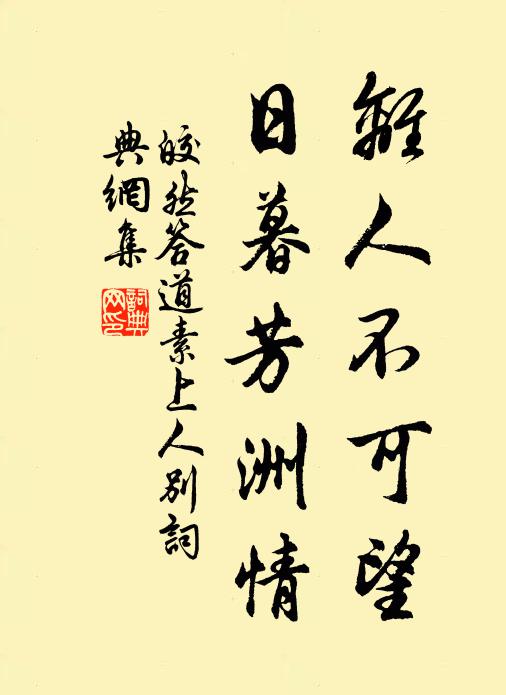 離人不可望
日暮芳洲情
皎然答道素上人別詞
典網集
詞典網印